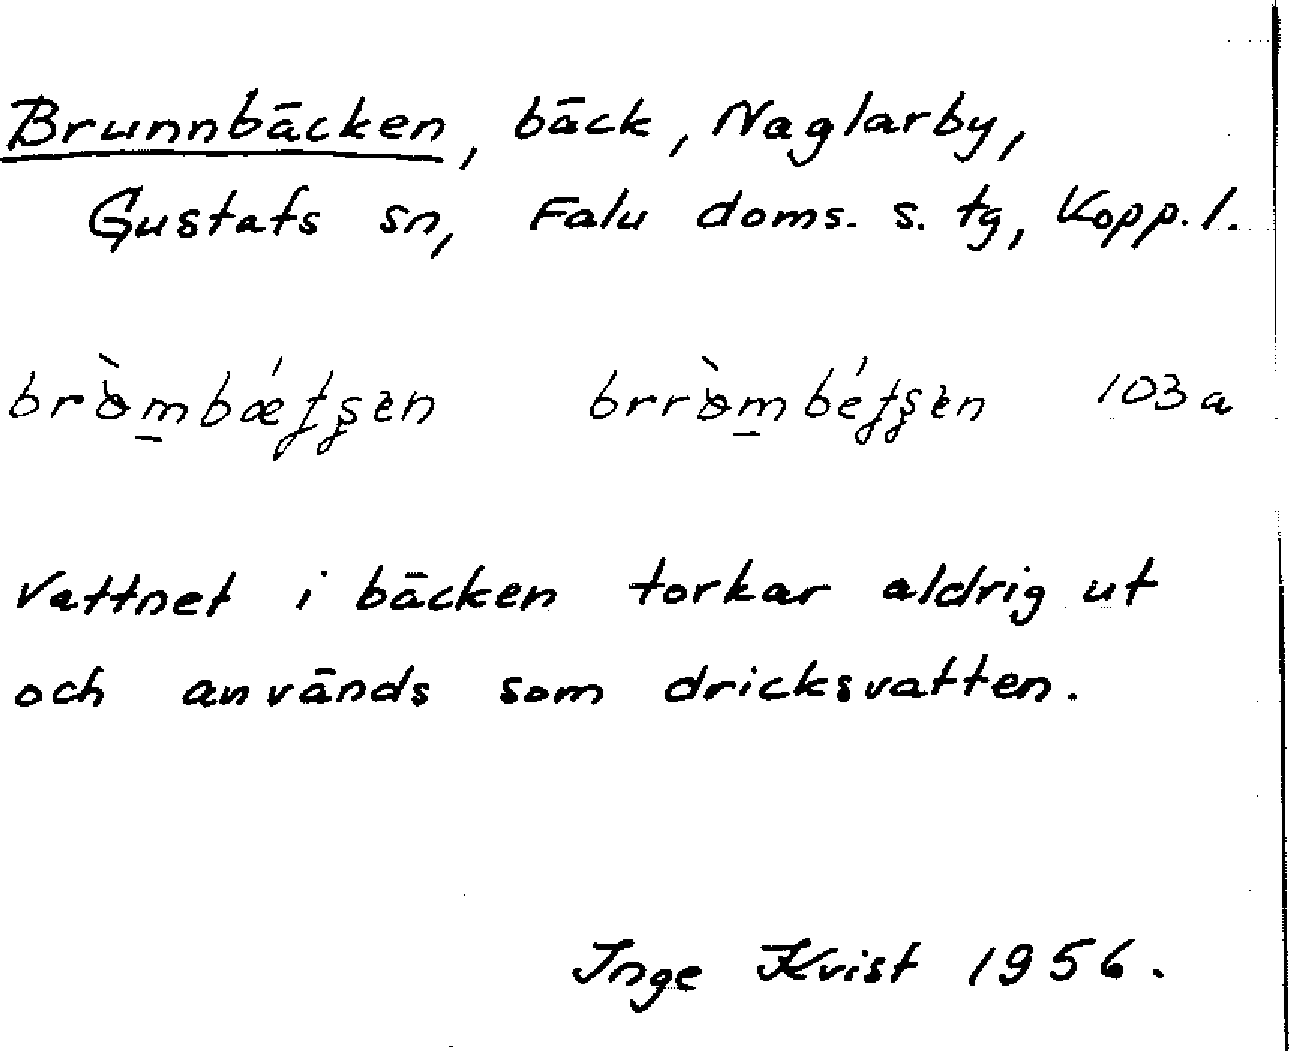 Brunnbäcken, bäck, Naglarby,
Gustafs sn, Falu doms. s. tg, Kopp. l.
103 a
Vattnet i bäcken torkar aldrig ut
och används som dricksvatten.
Inge Kvist 1956.